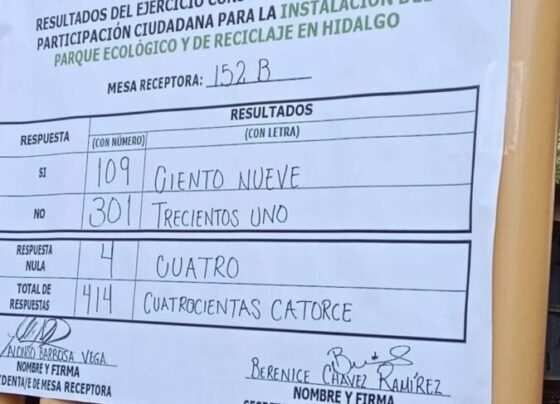 RESULTADOS DEL EJERCICIO
PARTICIPACIÓN CIUDADANA PARA LA INSTALACIÓN DEL
PARQUE ECOLÓGICO Y DE RECICLAJE EN HIDALGO
MESA RECEPTORA: 152 B
RESPUESTA RESULTADOS
(CON NÚMERO) (CON LETRA)
SI 109 CIENTO NUEVE
NO 301 TRECIENTOS UNO
RESPUESTA NULA 4 CUATRO
TOTAL DE RESPUESTAS 414 CUATROCIENTAS CATORCE
ALONSO BARBOSA VEGA BERENICE CHÁVEZ RAMÍREZ
NOMBRE Y FIRMA NOMBRE Y FIRMA
DE MESA RECEPTORA